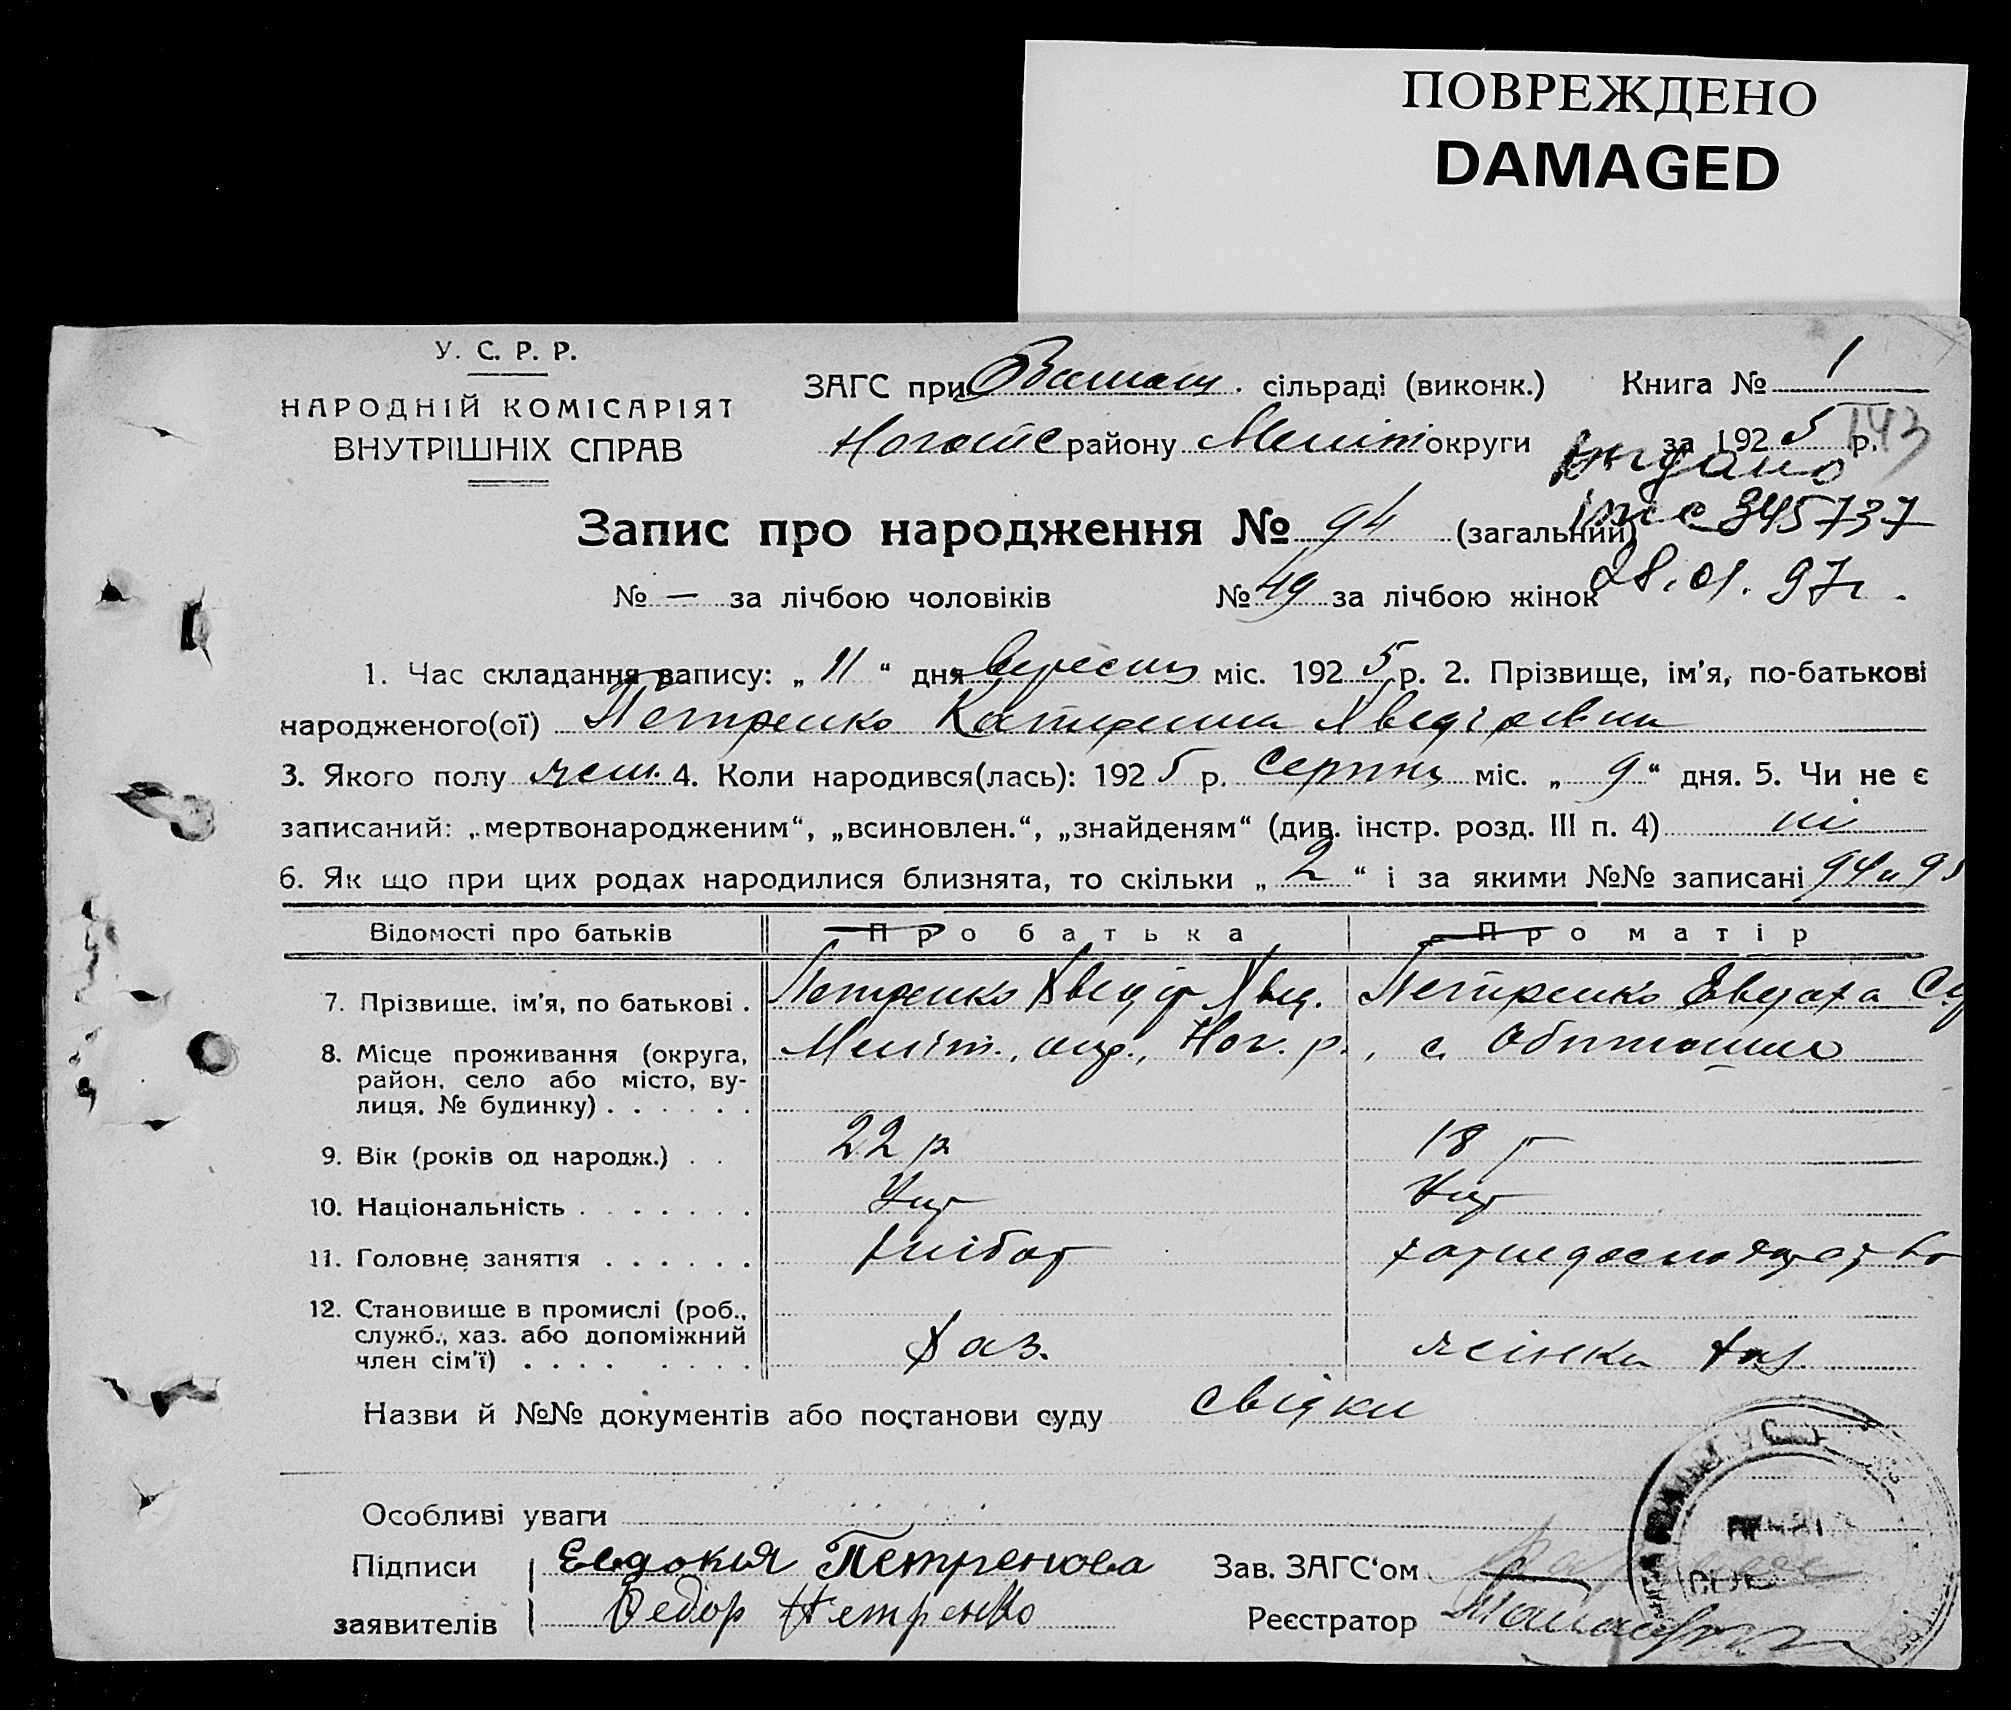 ПОВРЕЖДЕНО
DAMAGED
У. С. Р. Р.
НАРОДНІЙ КОМІСАРІЯТ
ВНУТРІШНІХ СПРАВ
ЗАГС при сільраді (виконк.) Книга № 1
району Меліт округи за 1925 р. 143
видано
345737
28.01.97г.
Запис про народження № 94 (загальний)
№ — за лічбою чоловіків № 49 за лічбою жінок
1. Час складання запису: „ 11 “ дня вересня міс. 1925 р. 2. Прізвище, ім'я, по-батькові
народженого(ої) Петренко Катерина Хведірівна
3. Якого полу жін. 4. Коли народився(лась): 1925 р. серпня міс. „ 9 “ дня. 5. Чи не є
записаний: „мертвонародженим“, „всиновлен.“, „знайденям“ (див. інстр. розд. III п. 4) ні
6. Як що при цих родах народилися близнята, то скільки „ 2 “ і за якими №№ записані 94 и 95
Відомості про батьків Про батька Про матір
7. Прізвище, ім'я, по батькові . Петренко Хведір Хвед. Петренко
8. Місце проживання (округа, Меліт., окр., Ног. р., с.
район, село або місто, ву-
лиця, № будинку) . . . . . .
9. Вік (років од народж.) . . 22 р 18 р
10. Національність . . . . . . . Укр Укр
11. Головне заняття . . . . . . хлібор
12. Становище в промислі (роб.,
служб., хаз. або допоміжний
член сім'ї) . . . . . . . . Хаз. жінка хаз.
Назви й №№ документів або постанови суду свідки
Особливі уваги
Підписи Евдокия Петренкова Зав. ЗАГС'ом
заявителів Федор Петренко Реєстратор